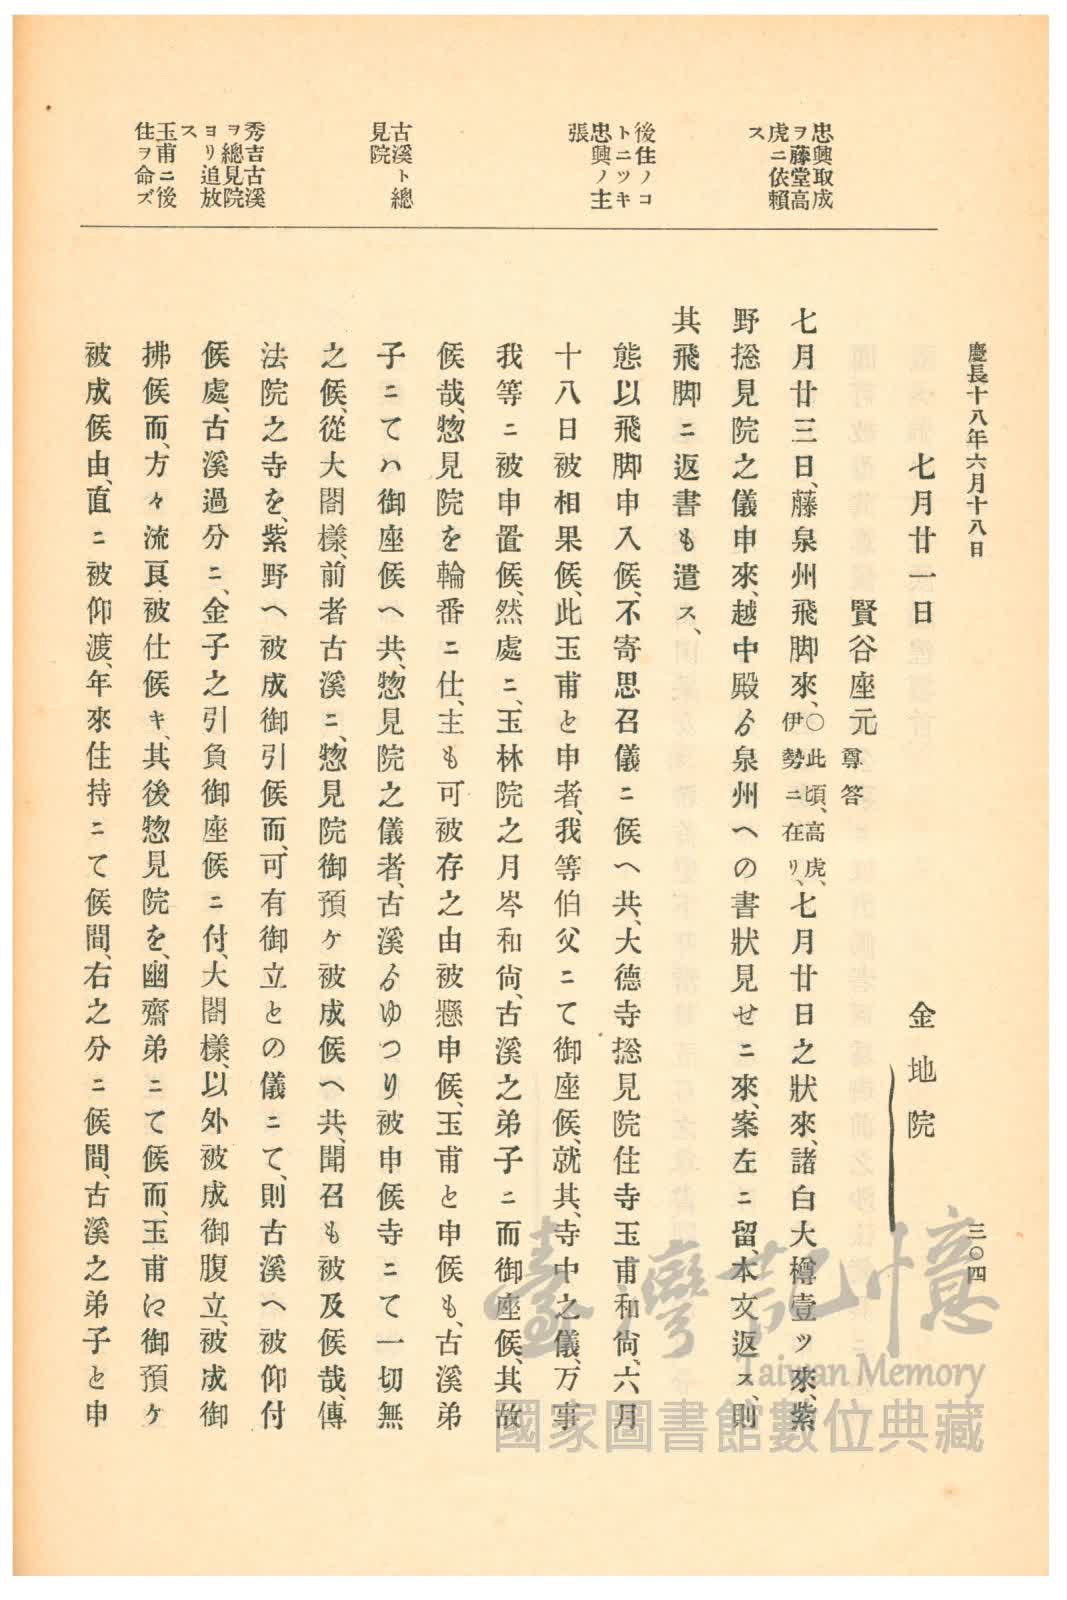 慶長十八年六月十八日
三〇四
忠興取成
ヲ藤堂高
虎ニ依賴
ス
後住ノコ
トニツキ
忠興ノ主
張
古溪ト總
見院
秀吉古溪
ヲ總見院
ヨリ追放
ス
玉甫ニ後
住ヲ命ズ
七月廿一日　金地院
賢谷座元尊答
七月廿三日、藤泉州飛脚來、〇此頃、高虎、伊勢ニ在リ、七月廿日之狀來、諸白大樽壹ツ來、紫
野捴見院之儀申來、越中殿ゟ泉州への書狀見せニ來、案左ニ留、本文返ス、則
其飛脚ニ返書も遣ス、
態以飛脚申入候、不寄思召儀ニ候へ共、大德寺捴見院住寺玉甫和尙、六月
十八日被相果候、此玉甫と申者、我等伯父ニて御座候、就其、寺中之儀、万事
我等ニ被申置候、然處ニ、玉林院之月岑和尙、古溪之弟子ニ而御座候、其故
候哉、惣見院を輪番ニ仕、主も可被存之由被懸申候、玉甫と申候も、古溪弟
子ニてハ御座候へ共、惣見院之儀者、古溪ゟゆつり被申候寺ニて一切無
之候、從大閤樣、前者古溪ニ、惣見院御預ケ被成候へ共、聞召も被及候哉、傳
法院之寺を、紫野へ被成御引候而、可有御立との儀ニて、則古溪へ被仰付
候處、古溪過分ニ、金子之引負御座候ニ付、大閤樣、以外被成御腹立、被成御
拂候而、方々流良被仕候キ、其後惣見院を、幽齋弟ニて候而、玉甫ニ御預ケ
被成候由、直ニ被仰渡、年來住持ニて候間、右之分ニ候間、古溪之弟子と申
臺灣記憶
Taiwan Memory
國家圖書館數位典藏